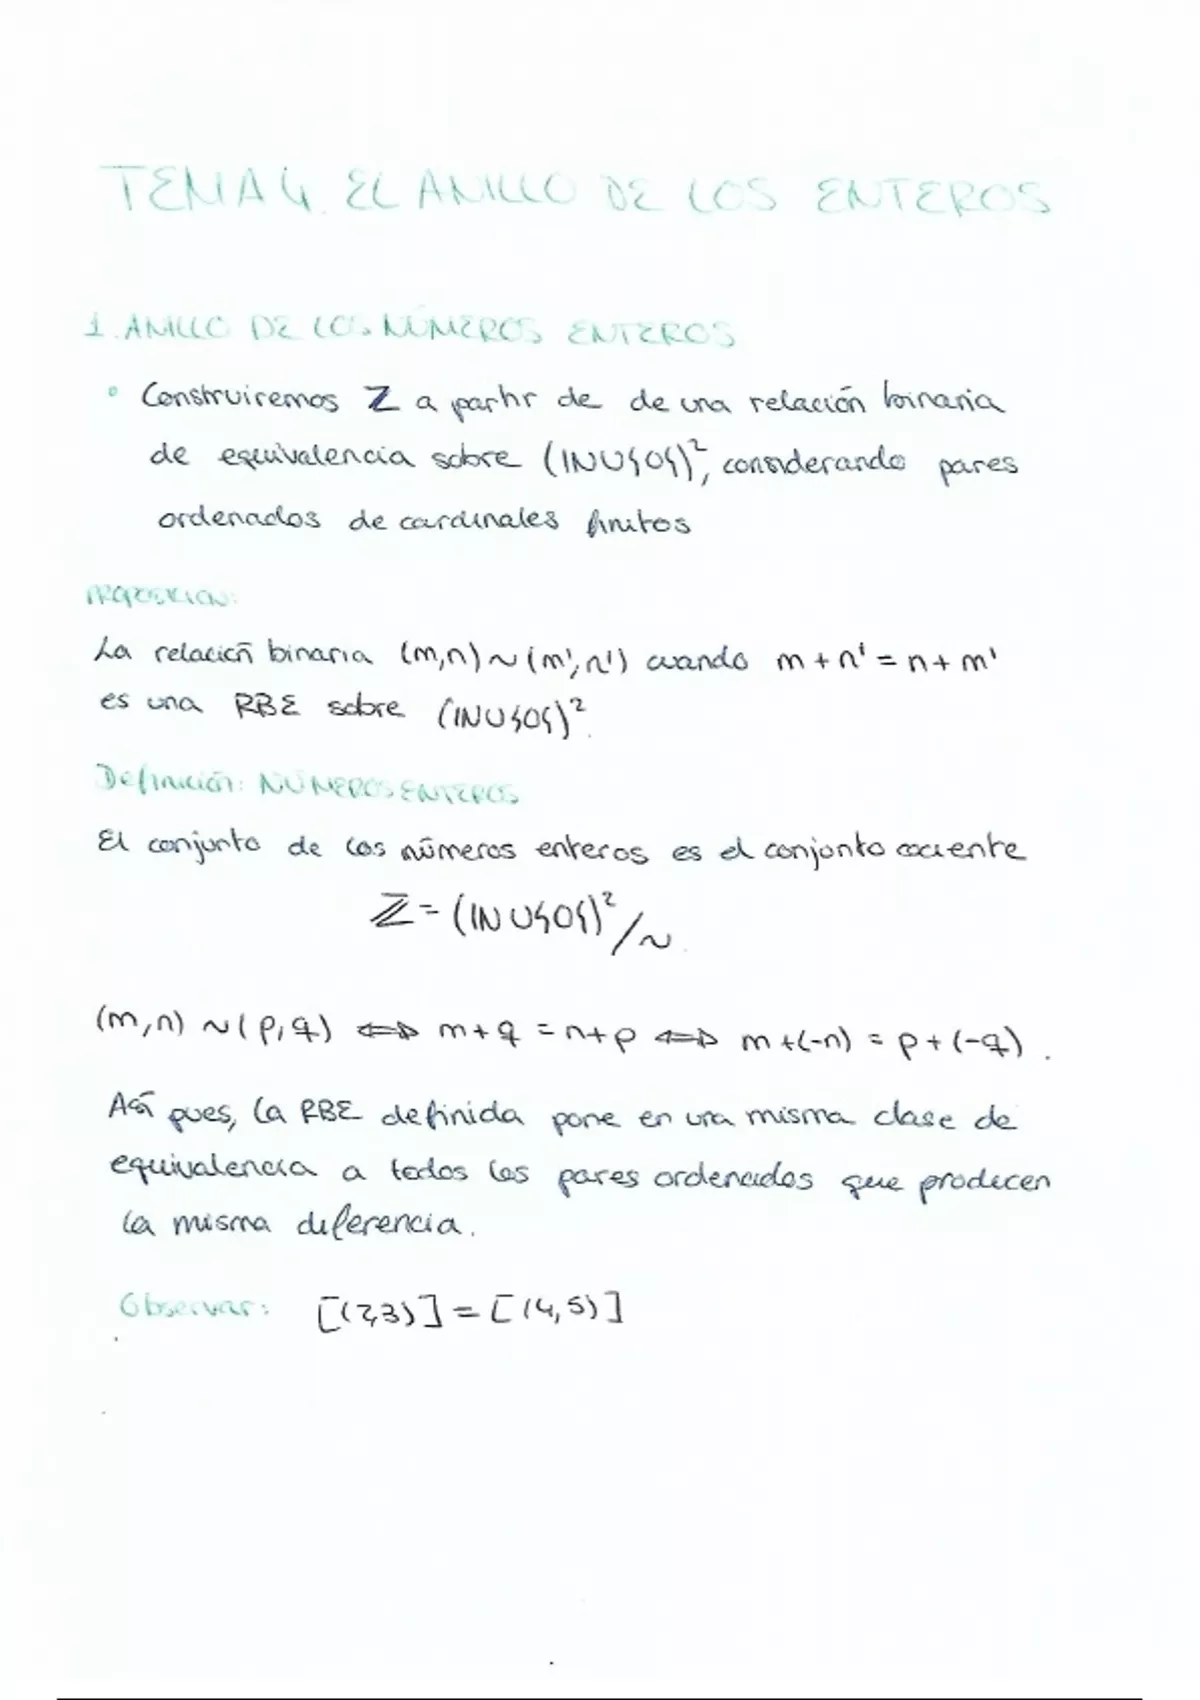 TEMA 4. EL ANILLO DE LOS ENTEROS
1. ANILLO DE LOS NÚMEROS ENTEROS
• Construiremos ℤ a partir de de una relación binaria
de equivalencia sobre (ℕ∪{0})², considerando pares
ordenados de cardinales finitos
PROPOSICION:
La relación binaria (m,n) ~ (m',n') cuando m + n' = n + m'
es una RBE sobre (ℕ∪{0})².
Definición: NÚMEROS ENTEROS
El conjunto de los números enteros es el conjunto cociente
ℤ = (ℕ∪{0})²/~.
(m,n) ~ (p,q) ⟺ m + q = n + p ⟺ m + (-n) = p + (-q).
Así pues, la RBE definida pone en una misma clase de
equivalencia a todos los pares ordenados que producen
la misma diferencia.
Observar: [(2,3)] = [(4,5)]